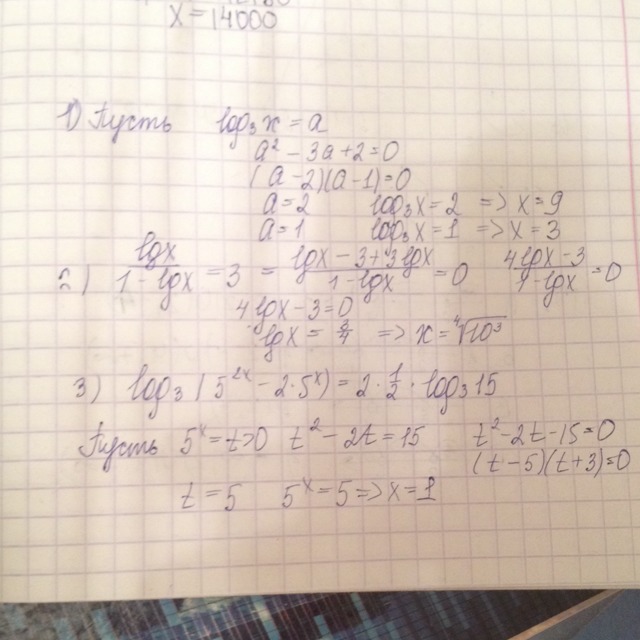 x=14000
1) Пусть log₃x = a
a² - 3a + 2 = 0
(a - 2)(a - 1) = 0
a = 2 log₃x = 2 => x = 9
a = 1 log₃x = 1 => x = 3
2) lgx/(1 - lgx) = 3 = (lgx - 3 + 3lgx)/(1 - lgx) = 0 (4lgx - 3)/(1 - lgx) = 0
4lgx - 3 = 0
lgx = 3/4 => x = ⁴√10³
3) log₃(5²ˣ - 2·5ˣ) = 2·1/2·log₃15
Пусть 5ˣ = t>0 t² - 2t = 15 t² - 2t - 15 = 0
(t - 5)(t + 3) = 0
t = 5 5ˣ = 5 => x = 1